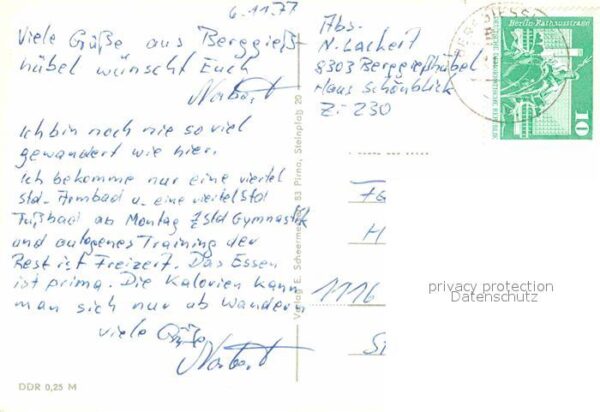 6.11.77
Viele Grüße aus Berggieß-
hübel wünscht Euch
Norbert
Ich bin noch nie so viel
gewandert wie hier.
Ich bekomme nur eine viertel
Std. Armbad u. eine viertel Std
Fußbad ab Montag ½ Std Gymnastik
und autogenes Training der
Rest ist Freizeit. Das Essen
ist prima. Die Kalorien kann
man sich nur ab Wandern
viele Grüße
Norbert
DDR 0,25 M
Verlag E. Scheermesser, 83 Pirna, Steinplatz 20
Abs.
N. Lackert
8303 Berggießhübel
Haus Schönblick
Zi 230
Berlin-Rathausstrasse
10
1116
privacy protection
Datenschutz